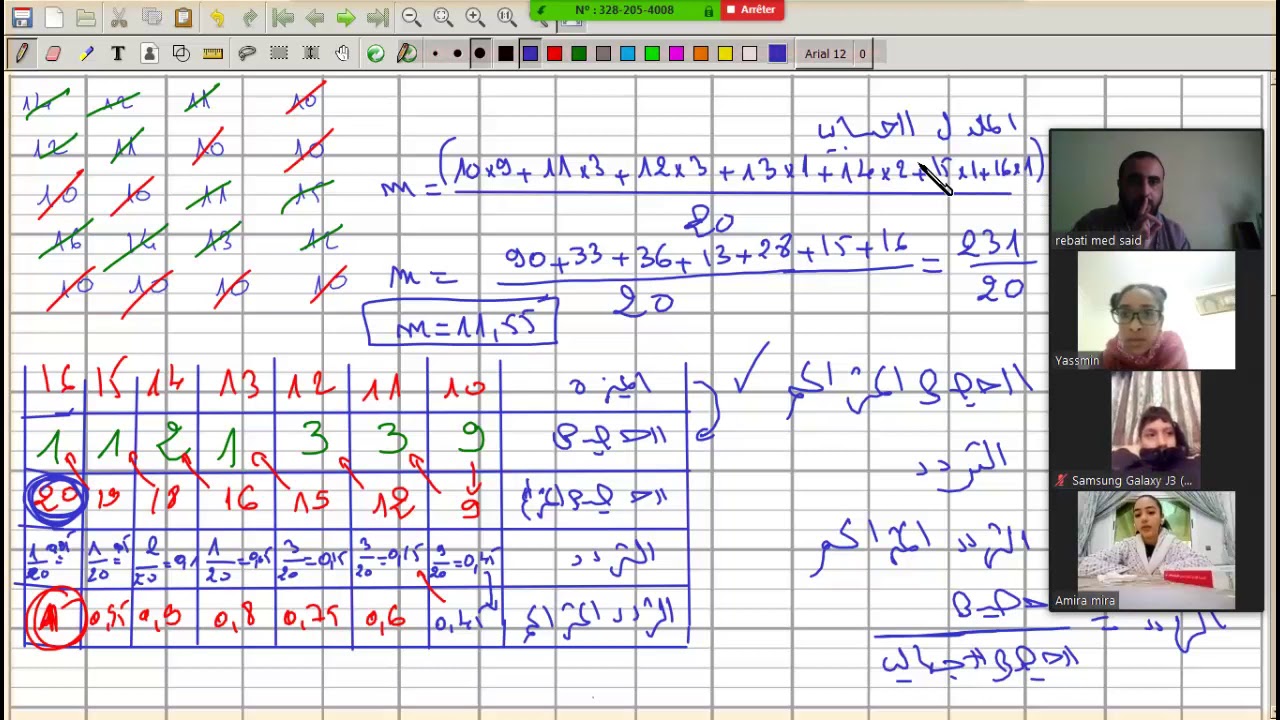 N° : 328-205-4008 Arrêter
Arial 12 0
14 12 11 10
12 11 10 10
10 10 11 15
16 14 13 12
10 10 10 10
المعدل الحسابي
m = (10×9 + 11×3 + 12×3 + 13×1 + 14×2 + 15×1 + 16×1)
20
m = 90 + 33 + 36 + 13 + 28 + 15 + 16 = 231
20 20
m = 11,55
16 15 14 13 12 11 10 الميزة
1 1 2 1 3 3 9 الحصيص
20 19 18 16 15 12 9
1/20= 1/20= 2/20=0,1 1/20=0,05 3/20=0,15 3/20=0,15 9/20=0,45 التردد
1 0,95 0,9 0,8 0,75 0,6 0,45 التردد المتراكم
✓ الحصيص المتراكم
التردد
التردد المتراكم
التردد = الحصيص
الحصيص الإجمالي
rebati med said
Yassmin
Samsung Galaxy J3 (...
Amira mira